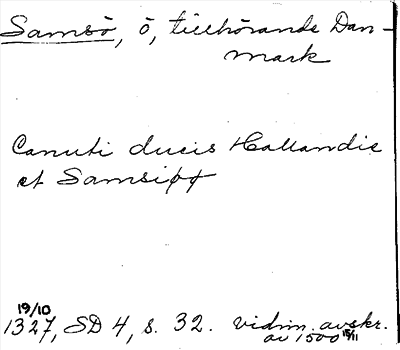 Samsö, ö, tillhörande Dan-
mark
Canuti ducis Hallandie
et Samsi
19/10
1327, SD 4, s. 32. vidim. avskr.
av 1500 15/11